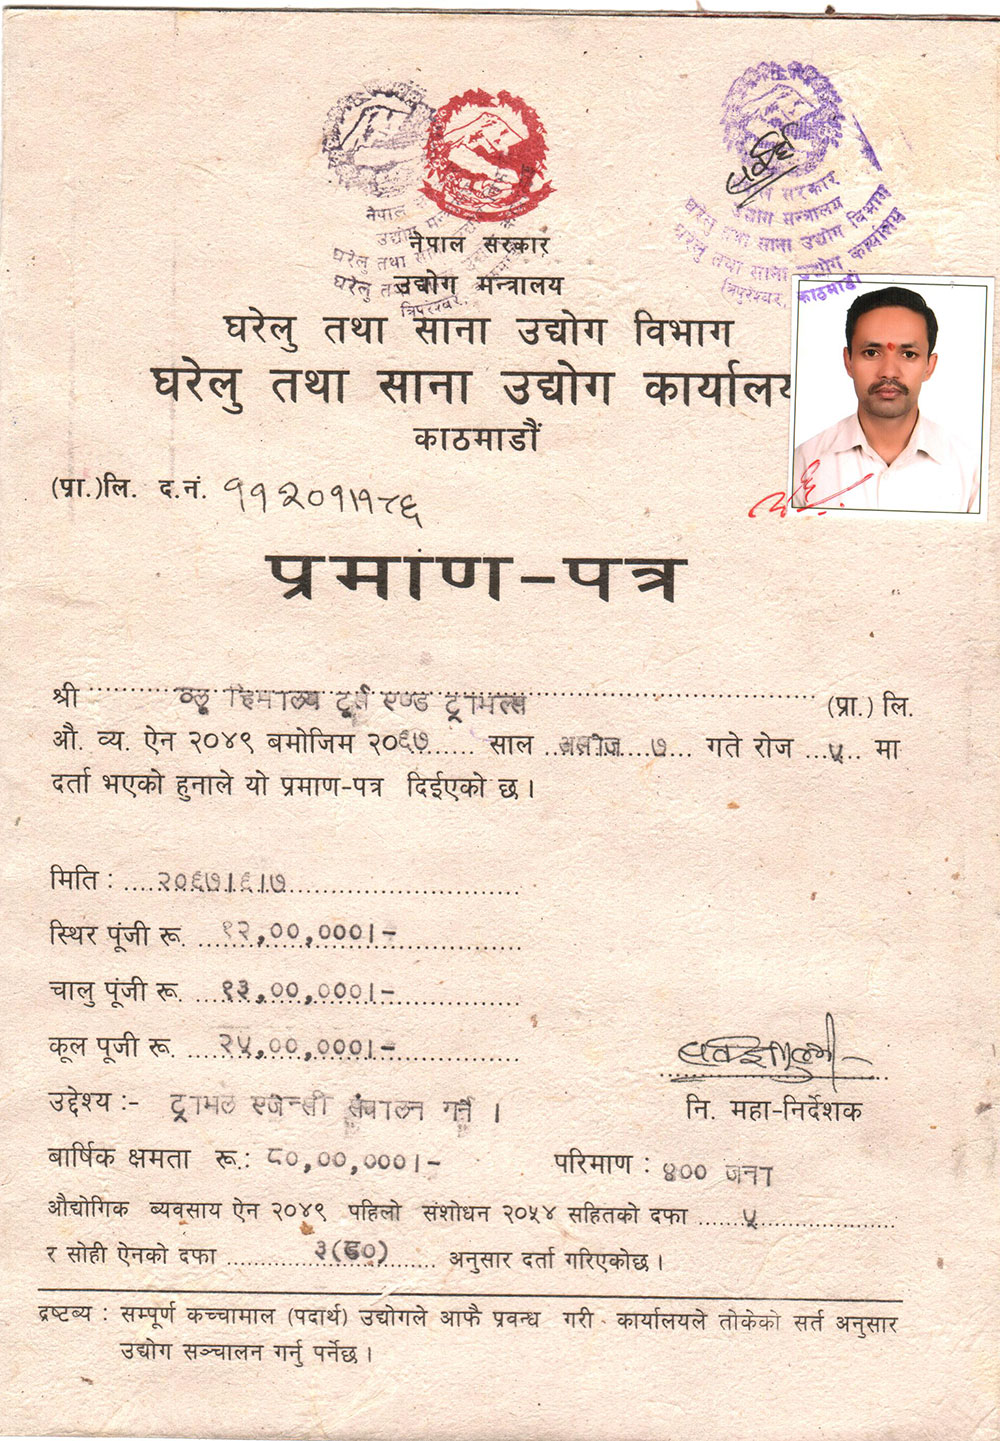 नेपाल सरकार
उद्योग मन्त्रालय
घरेलु तथा साना उद्योग विभाग
घरेलु तथा साना उद्योग कार्यालय
त्रिपुरेश्वर, काठमाडौं
नेपाल सरकार
उद्योग मन्त्रालय
घरेलु तथा साना उद्योग विभाग
घरेलु तथा साना उद्योग कार्यालय
काठमाडौं
(प्रा.)लि. द.नं. ११२०१।१८६
प्रमाण-पत्र
श्री ब्लू हिमालय टूर्स एण्ड ट्राभल्स (प्रा.) लि.
औ. व्य. ऐन २०४९ बमोजिम २०६७ साल असोज ७ गते रोज ५ मा
दर्ता भएको हुनाले यो प्रमाण-पत्र दिईएको छ।
मिति : २०६७।६।७
स्थिर पूंजी रू. १२,००,०००।-
चालु पूंजी रू. १३,००,०००।-
कूल पूजी रू. २५,००,०००।-
उद्देश्य :- ट्राभल एजेन्सी संचालन गर्ने ।
नि. महा-निर्देशक
बार्षिक क्षमता रू.: ८०,००,०००।- परिमाण : ४०० जना
औद्योगिक ब्यवसाय ऐन २०४९ पहिलो संशोधन २०५४ सहितको दफा ५
र सोही ऐनको दफा अनुसार दर्ता गरिएकोछ।
द्रष्टव्य : सम्पूर्ण कच्चामाल (पदार्थ) उद्योगले आफै प्रवन्ध गरी कार्यालयले तोकेको सर्त अनुसार
उद्योग सञ्चालन गर्नु पर्नेछ।